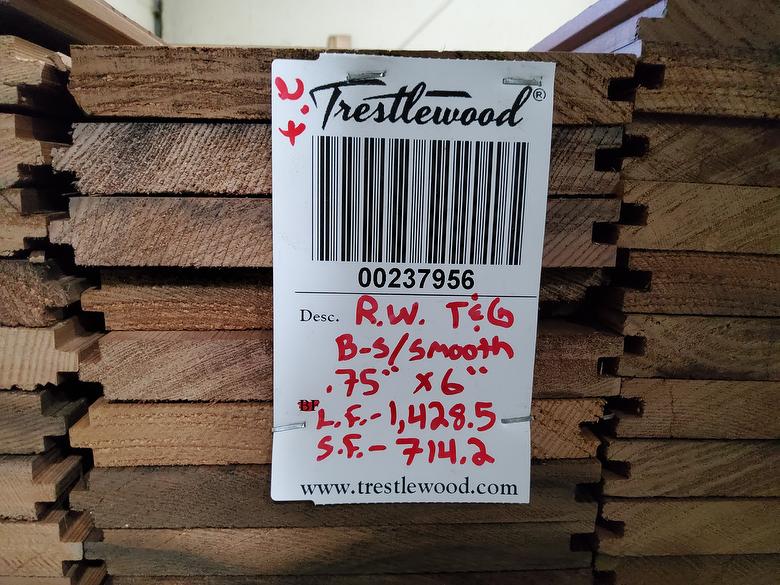 Trestlewood®
00237956
Desc. R.W. T&G
B-S/Smooth
.75" x 6"
BF L.F.-1,428.5
S.F.-714.2
www.trestlewood.com